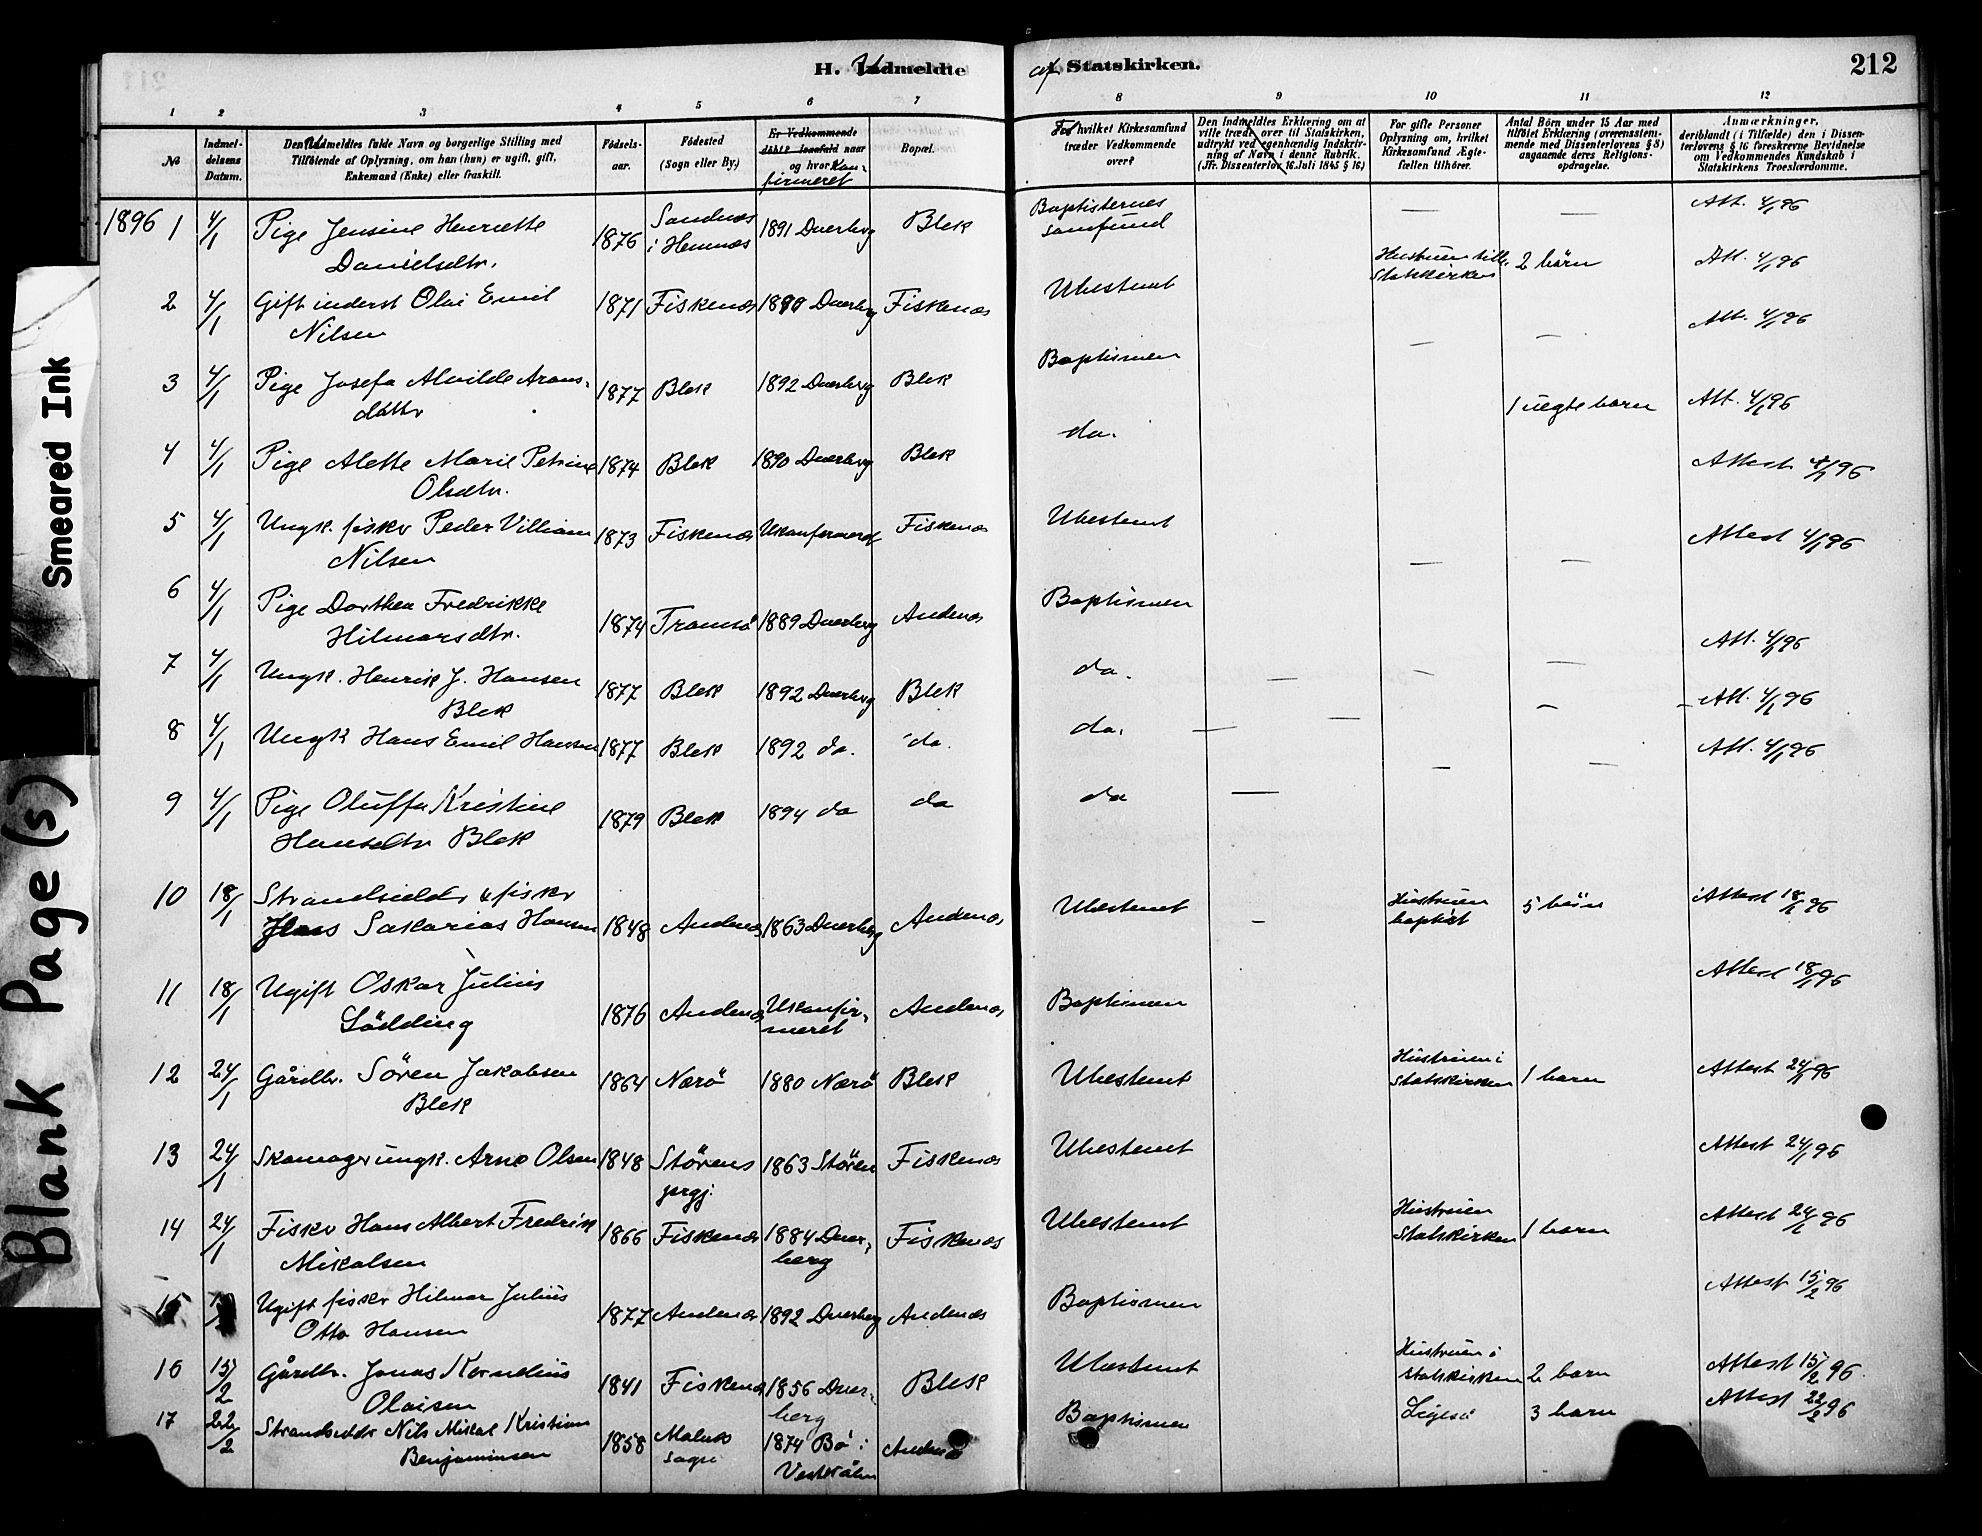 H. Udmeldte af Statskirken.
212
1 2 3 4 5 6 7 8 9 10 11 12
No
Indmel-
delsens
Datum.
Den Udmeldtes fulde Navn og borgerlige Stilling med
Tilföiende af Oplysning, om han (hun) er ugift, gift,
Enkemand (Enke) eller fraskilt.
Födsels-
aar.
Födested
(Sogn eller By.)
Er Vedkommende
döbt? Isaafald naar
og hvor Kon-
firmeret
Bopæl.
Til hvilket Kirkesamfund
træder Vedkommende
over?
Den Indmeldtes Erklæring om at
ville træde over til Statskirken,
udtrykt ved egenhændig Indskriv-
ning af Navn i denne Rubrik.
(Jfr. Dissenterlov 16 Juli 1845 § 16)
For gifte Personer
Oplysning om, hvilket
Kirkesamfund Ægte-
fællen tilhörer.
Antal Börn under 15 Aar med
tilföiet Erklæring (overensstem-
mende med Dissenterlovens § 8)
angaaende deres Religions-
opdragelse.
Anmærkninger,
deriblandt (i Tilfælde) den i Dissen-
terlovens § 16 foreskrevne Bevidnelse
om Vedkommendes Kundskab i
Statskirkens Troeslærdomme.
1896 1 4/1 Pige Jensine Henriette
Danielsdtr. 1876 Sandnes
i Hemnes 1891 Dverberg Blek Baptisternes
samfund — — Att. 4/1 96
2 4/1 Gift inderst Olai Emil
Nilsen 1871 Fiskenæs 1890 Dverberg Fiskenæs Ubestemt Hustruen till.
Statskirken 2 börn Att. 4/1 96
3 4/1 Pige Josefa Alvilde Arons-
dattr 1877 Blek 1892 Dverberg Blek Baptismen — — Att. 4/1 96
4 4/1 Pige Alette Marie Petrine
Olsdtr. 1874 Blek 1890 Dverberg Blek do. 1 uegte barn Att. 4/1 96
5 4/1 Ungk. fisker Peder Villiam
Nilsen 1873 Fiskenæs Ukonfirmeret Fiskenæs Ubestemt Attest 4/1 96
6 4/1 Pige Dorthea Fredrikke
Hilmarsdtr. 1874 Tromsö 1889 Dverberg Andenæs Baptismen — — Attest 4/1 96
7 4/1 Ungk. Henrik J. Hansen
Blek 1877 Blek 1892 Dverberg Blek do. — — — Att. 4/1 96
8 4/1 Ungk Hans Emil Hansen 1877 Blek 1892 do. do. do. — — — Att. 4/1 96
9 4/1 Pige Oluffa Kristine
Hansdtr Blek 1879 Blek 1894 do do do — — — Att. 4/1 96
10 18/1 Strandsidder & fisker
Hans Sakarias Hansen 1848 Andenæs 1863 Dverberg Andenæs Ubestemt — Hustruen
baptist 5 börn Attest 18/1 96
11 18/1 Ugift Oskar Julius
Södding 1876 Andenæs Ukonfir-
meret Andenæs Baptismen Attest 18/1 96
12 24/1 Gårdbr. Sören Jakobsen
Blek 1864 Nærö 1880 Nærö Blek Ubestemt Hustruen i
Statskirken 1 barn Attest 24/1 96
13 24/1 Skomager ungk. Arne Olsen 1848 Störens
prgj. 1863 Stören Fiskenæs Ubestemt Attest 24/1 96
14 24/1 Fisker Hans Albert Fredrik
Mikalsen 1866 Fiskenæs 1884 Dver-
berg Fiskenæs Ubestemt Hustruen
Statskirken 1 barn Attest 24/1 96
15 Ugift fisker Hilmar Julius
Otto Hansen 1877 Andenæs 1892 Dverberg Andenæs Baptismen Attest 15/2 96
16 15/2 Gårdbr. Jonas Kornelius
Olaisen 1841 Fiskenæs 1856 Dver-
berg Blek Ubestemt Hustruen i
statskirken 2 barn Attest 15/2 96
17 22/2 Strandsiddr Nils Mikal Kristian
Benjaminsen 1858 Malnes
sogn 1874 Bö i
Vesterålen Andenæs Baptismen Ligeså 3 barn Attest 22/2 96
Smeared Ink
Blank Page (s)